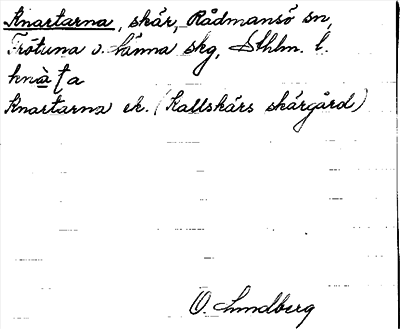 Knartarna, skär, Rådmansö sn,
Frötuna o. Länna skg, Sthlm. l.
Knartarna ek. (Kallskärs skärgård)
O. Lundberg